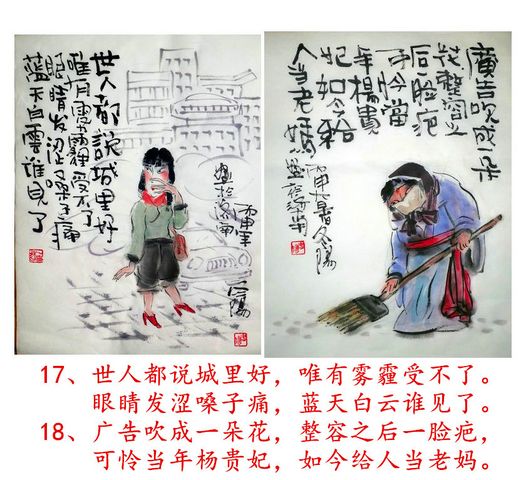 世人都說城里好
唯有雾霾受不了
眼睛发涩嗓子痛
蓝天白雲谁見了
丙申年
廣告吹成一朵
花整容之
后一脸疤
可怜當
年楊貴
妃如今給
人当老媽
17、世人都说城里好，唯有雾霾受不了。
眼睛发涩嗓子痛，蓝天白云谁见了。
18、广告吹成一朵花，整容之后一脸疤，
可怜当年杨贵妃，如今给人当老妈。